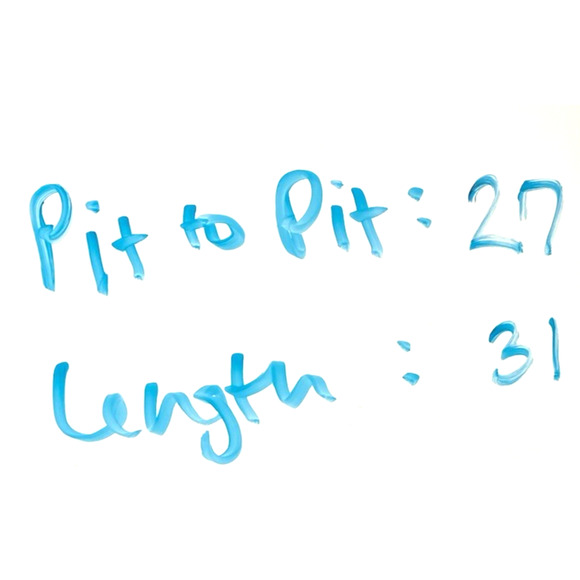 Pit to Pit : 27
Length : 31